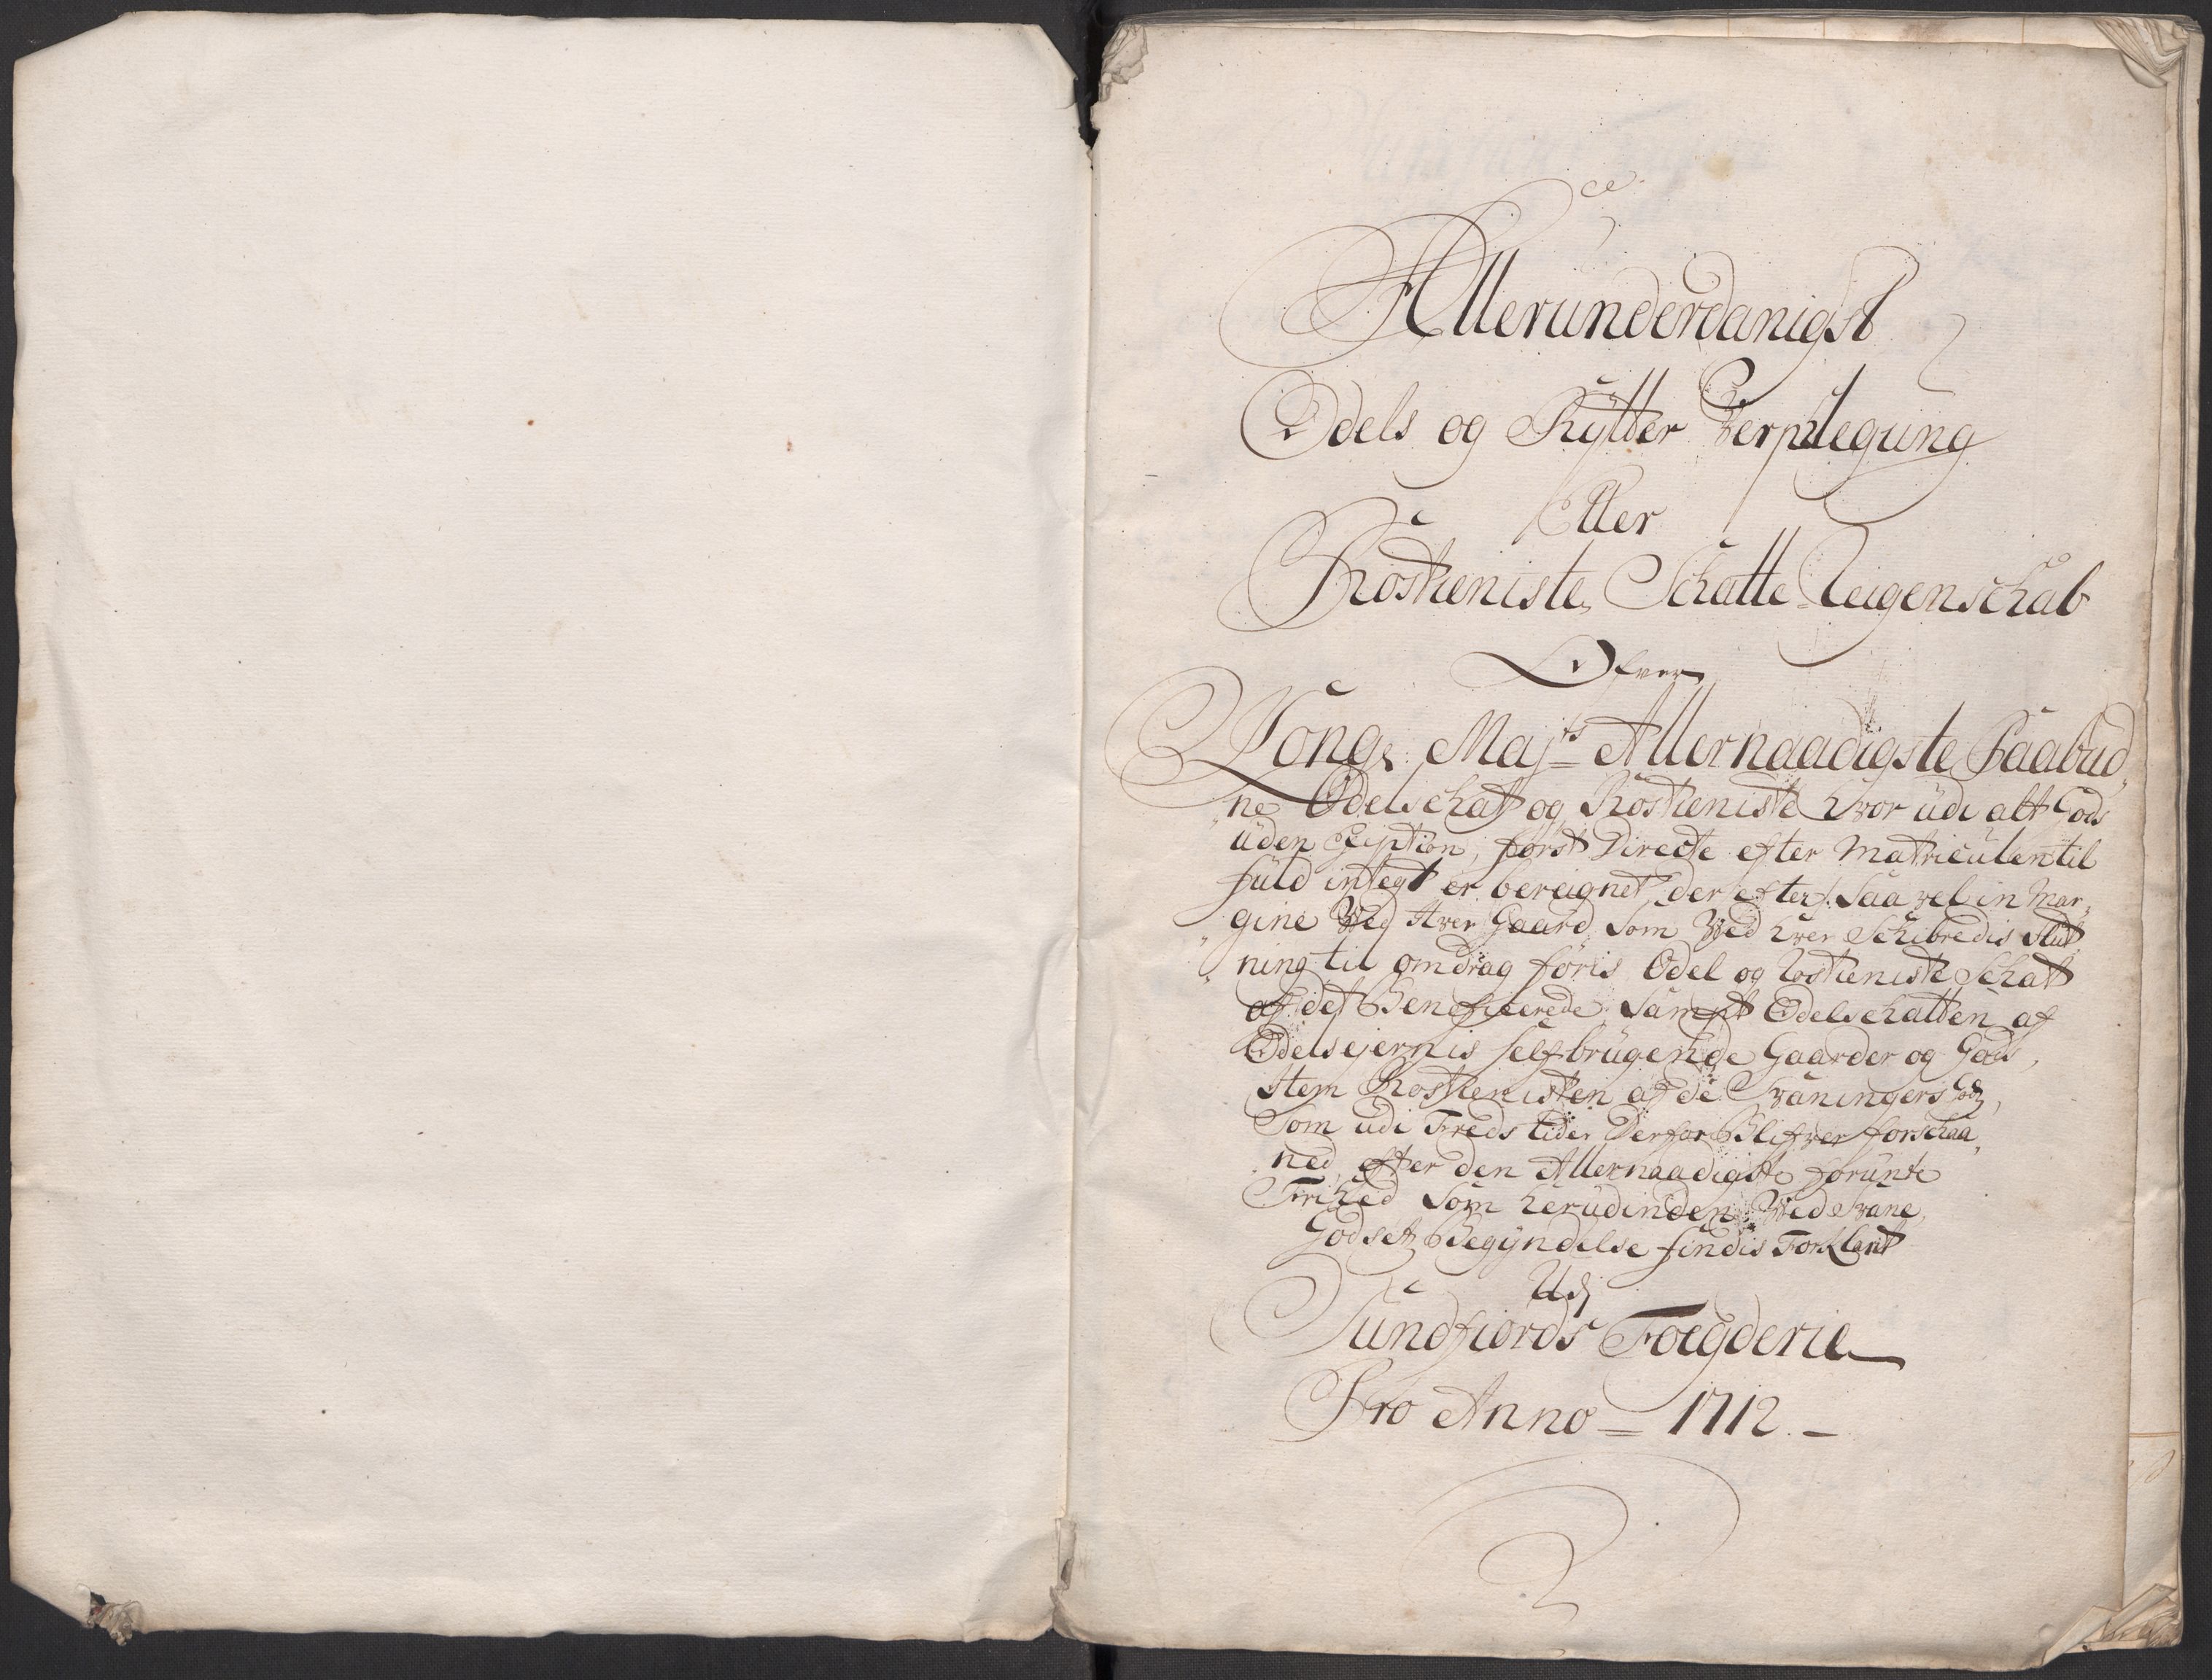 Allerunderdanigst
Odels og Rÿtter Verplegung
Eller
Rostieniste Schatte Reigenschab
Ofver
Kong: Maj.ts Allernaadigste Paabud„
„ne Odelschat og Rostieniste hvor udi alt Gods
uden Exiption, først Directe efter Matriculen til
fuld integt er bereignet, der efter saa vel in Mar„
„gine Wed Hver Gaard, som Wed hver Schibredis Slut„
„ning til omdrag føris Odel og Rostieniste Schat
af det Beneficerede sampt Odelschatten af
Odelsejernis selfbrugende Gaarder og Gods,
Item Rostienisten af de Svaningers Gods,
Som udi Freds tider Derfor Blifver forschaa„
„ned, efter den Allernaadigste forunte
Frihed som herudinden Wed Svane„
Godset Begÿndelse findis Forklarit
Udj
Sundfiords Foegderie
Pro Anno = 1712. –